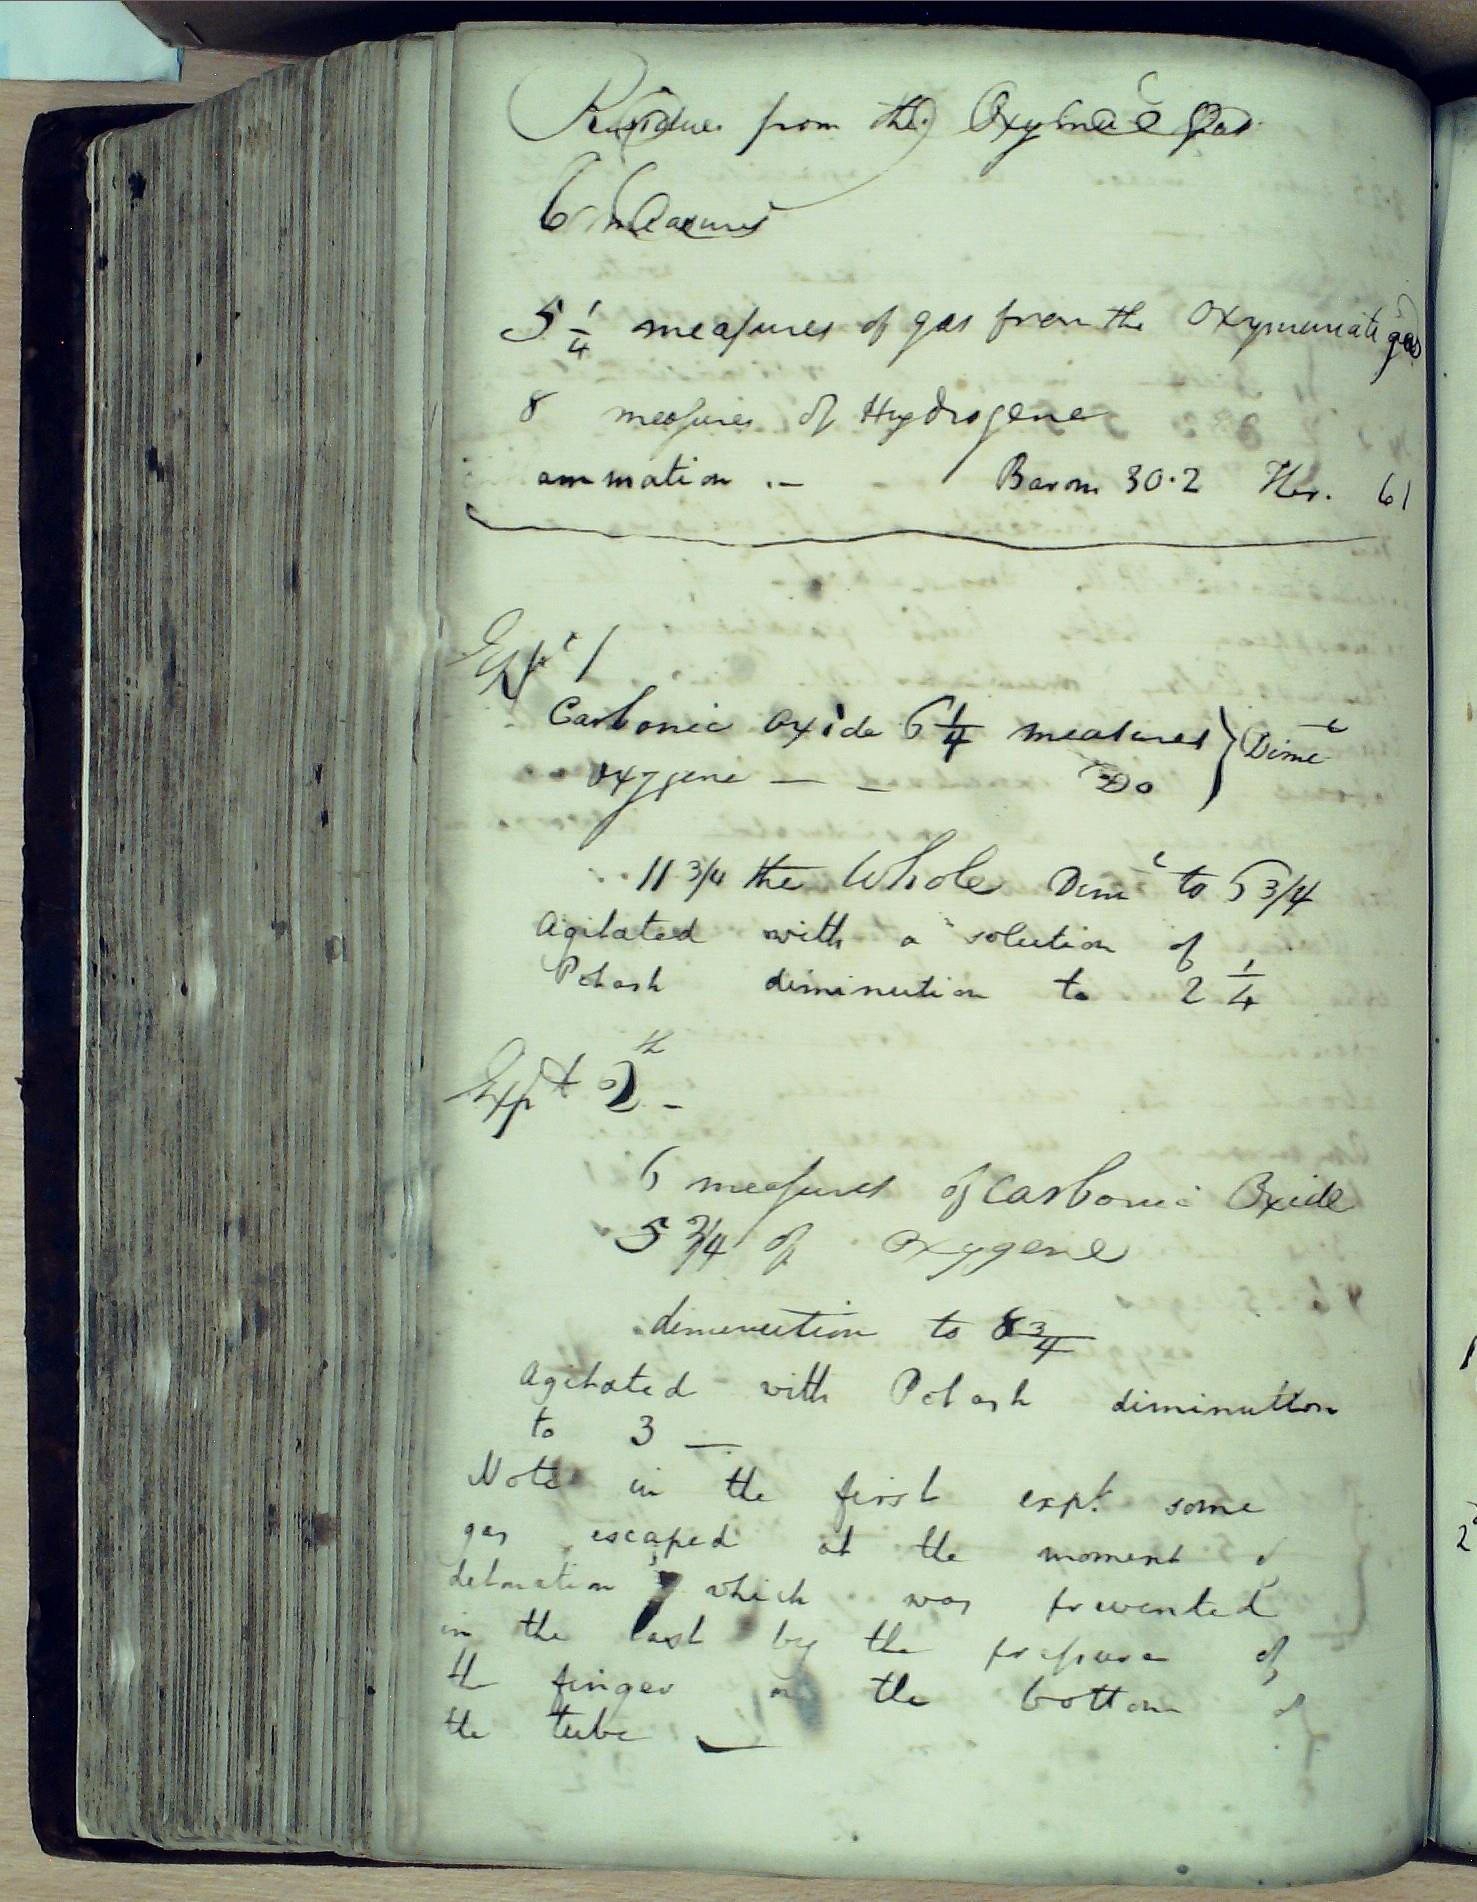 Residue from the Oxymu c Gas
6 measures
5 1/4 measures of gas from the Oxymuriatic gas
8 measures of Hydrogene
ammation .— - Barom 30.2 Ther. 61
Expt 1
Carbonic Oxide 6 1/4 measures } Dime
oxygene — — Do
11 3/4 the Whole Dim to 6 3/4
Agitated with a solution of
Potash diminution to 2 1/4
Expt 2th —
6 measures of Carbonic Oxide
5 3/4 of Oxygene
diminution to 8 3/4
Agitated with Potash diminution
to 3 —
Note in the first expt. some
gas escaped at the moment of
detonation, which was prevented
in the last by the pressure of
the finger on the bottom of
the tube —